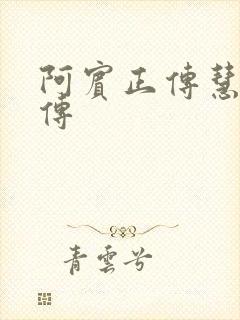 阿賓正傳慧
傳
青雲兮